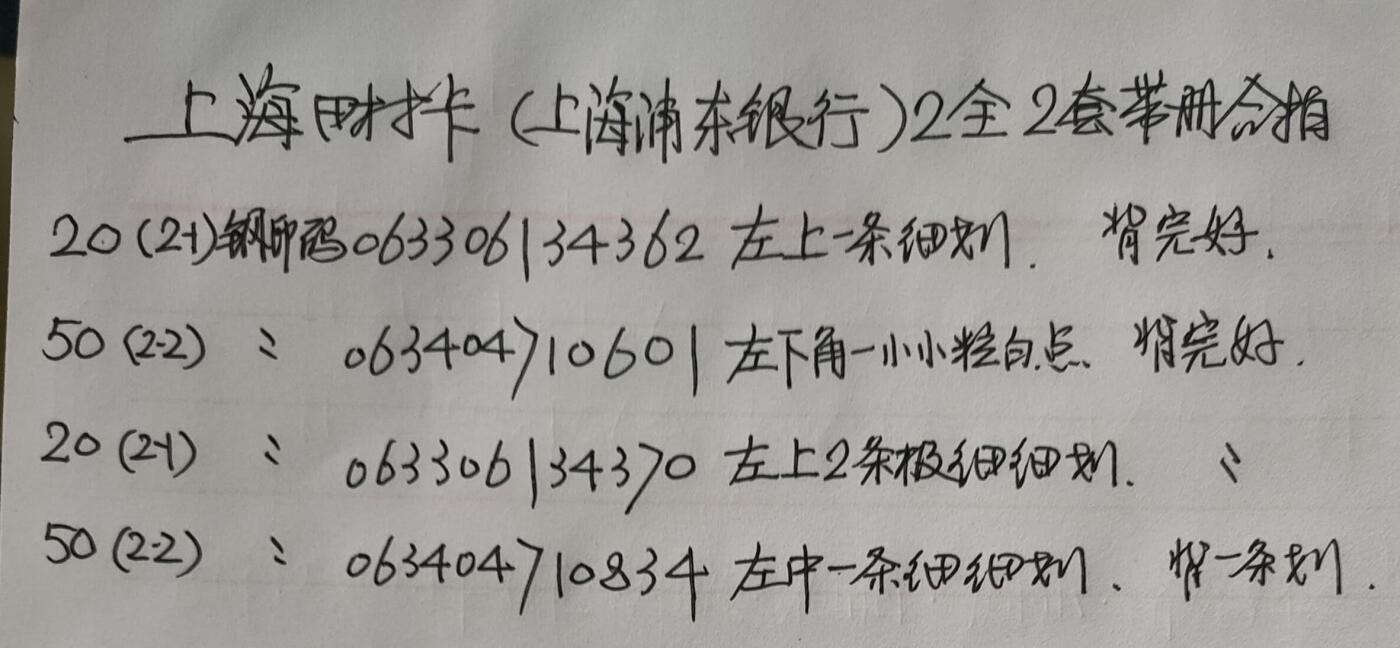 上海田村卡(上海浦东银行)2全2套带册合拍
20(2-1)钢印码063306134362左上一条细划. 背完好.
50(2-2) 〃 063404710601左下角一小小粒白点、背完好.
20(2-1) 〃 063306134370左上2条极细细划. 〃
50(2-2) 〃 063404710834左中一条细细划、背一条划.